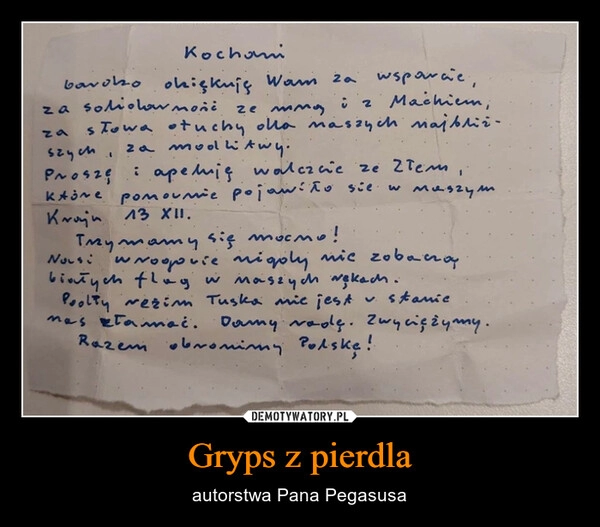 Kochani
bardzo dziękuję Wam za wsparcie,
za solidarność ze mną i z Maćkiem,
za słowa otuchy dla naszych najbliż-
szych, za modlitwy.
Proszę i apeluję walczcie ze Złem,
które ponownie pojawiło się w naszym
Kraju 13 XII.
Trzymamy się mocno!
Nasi wrogowie nigdy nie zobaczą
białych flag w naszych rękach.
Podły reżim Tuska nie jest w stanie
nas złamać. Damy radę. Zwyciężymy.
Razem obronimy Polskę!
DEMOTYWATORY.PL
Gryps z pierdla
autorstwa Pana Pegasusa